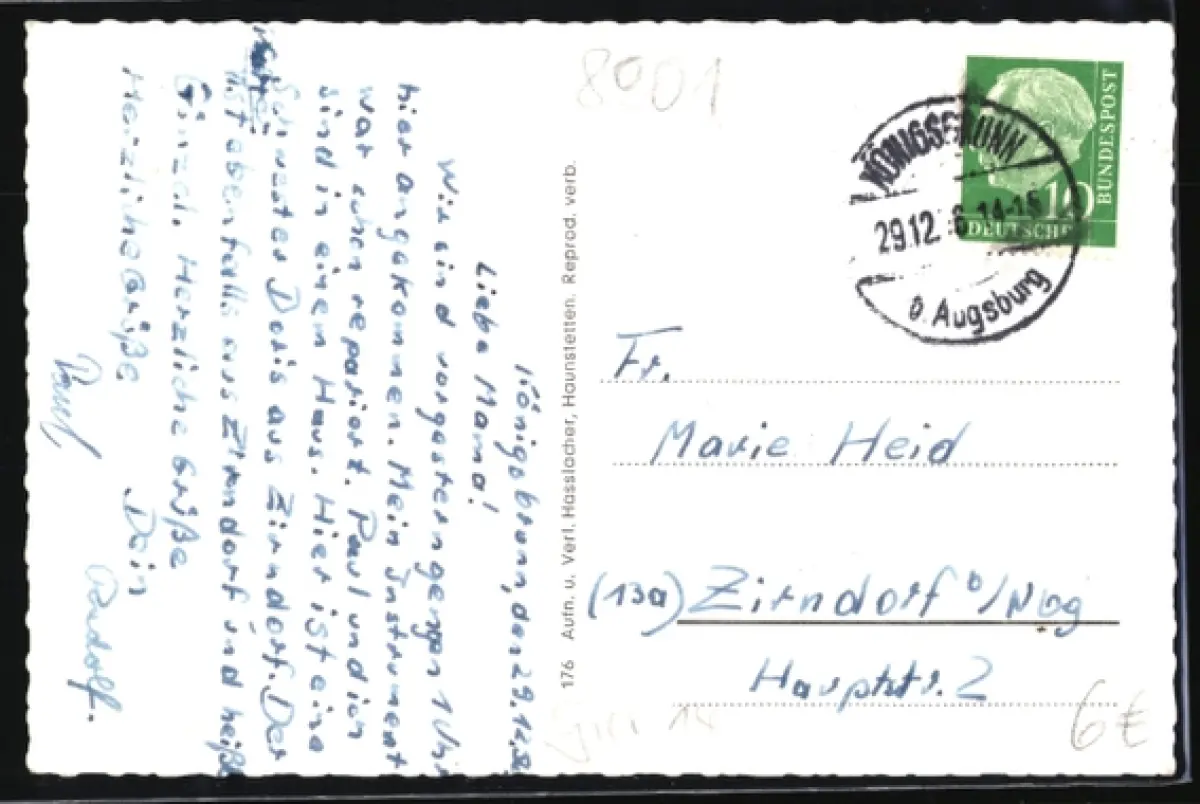 Königsbrunn, den 29.12.
Liebe Mama!
Wir sind vorgestern gegen 1 Uhr
hier angekommen. Mein Instrument
war schon repariert. Paul und ich
sind in einem Haus. Hier ist eine
Schwester Doris aus Zirndorf. Der
ist ebenfalls aus Zirndorf und heißt
Herzliche Grüße
Herzliche Grüße Dein
Paul
Rudolf.
176 Aufn. u. Verl. Hasslacher, Haunstetten. Reprod. verb.
8901
KÖNIGSBRUNN
29.12. 14-15
ü. Augsburg
DEUTSCHE
BUNDESPOST
10
Fr.
Marie Heid
(13a) Zirndorf b/Nbg
Hauptstr. 2
6€